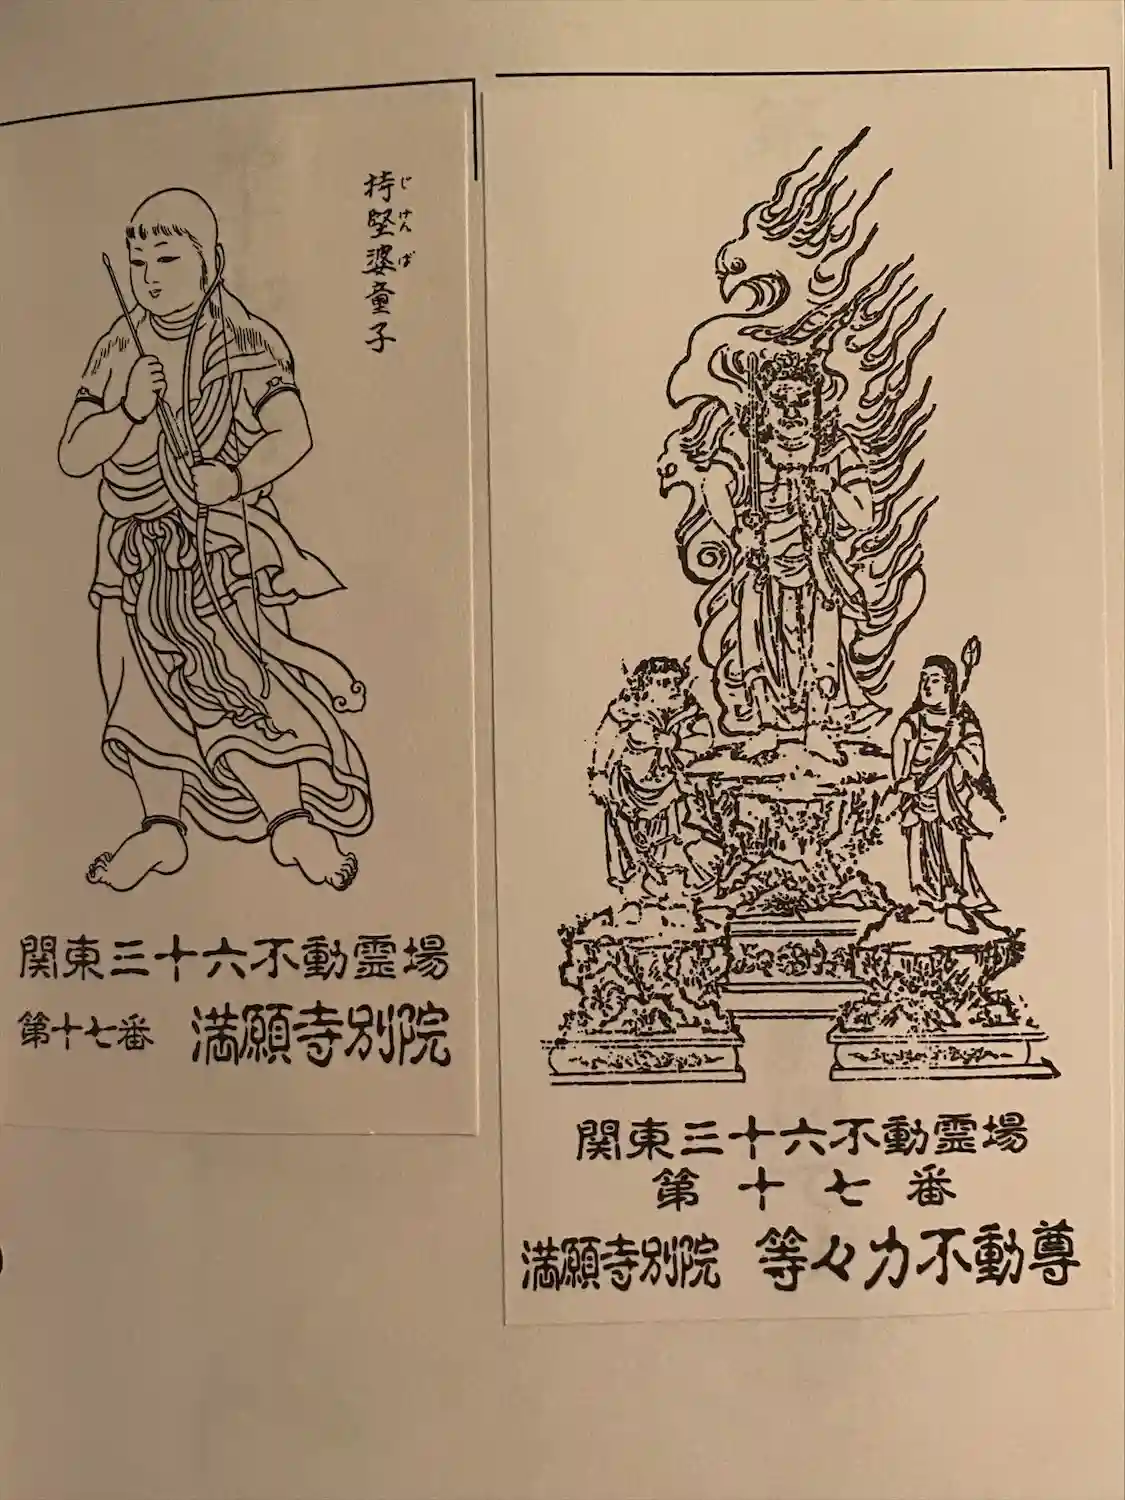 持堅婆童子
じけんば
関東三十六不動霊場
第十七番 満願寺別院
関東三十六不動霊場
第十七番
満願寺別院 等々力不動尊